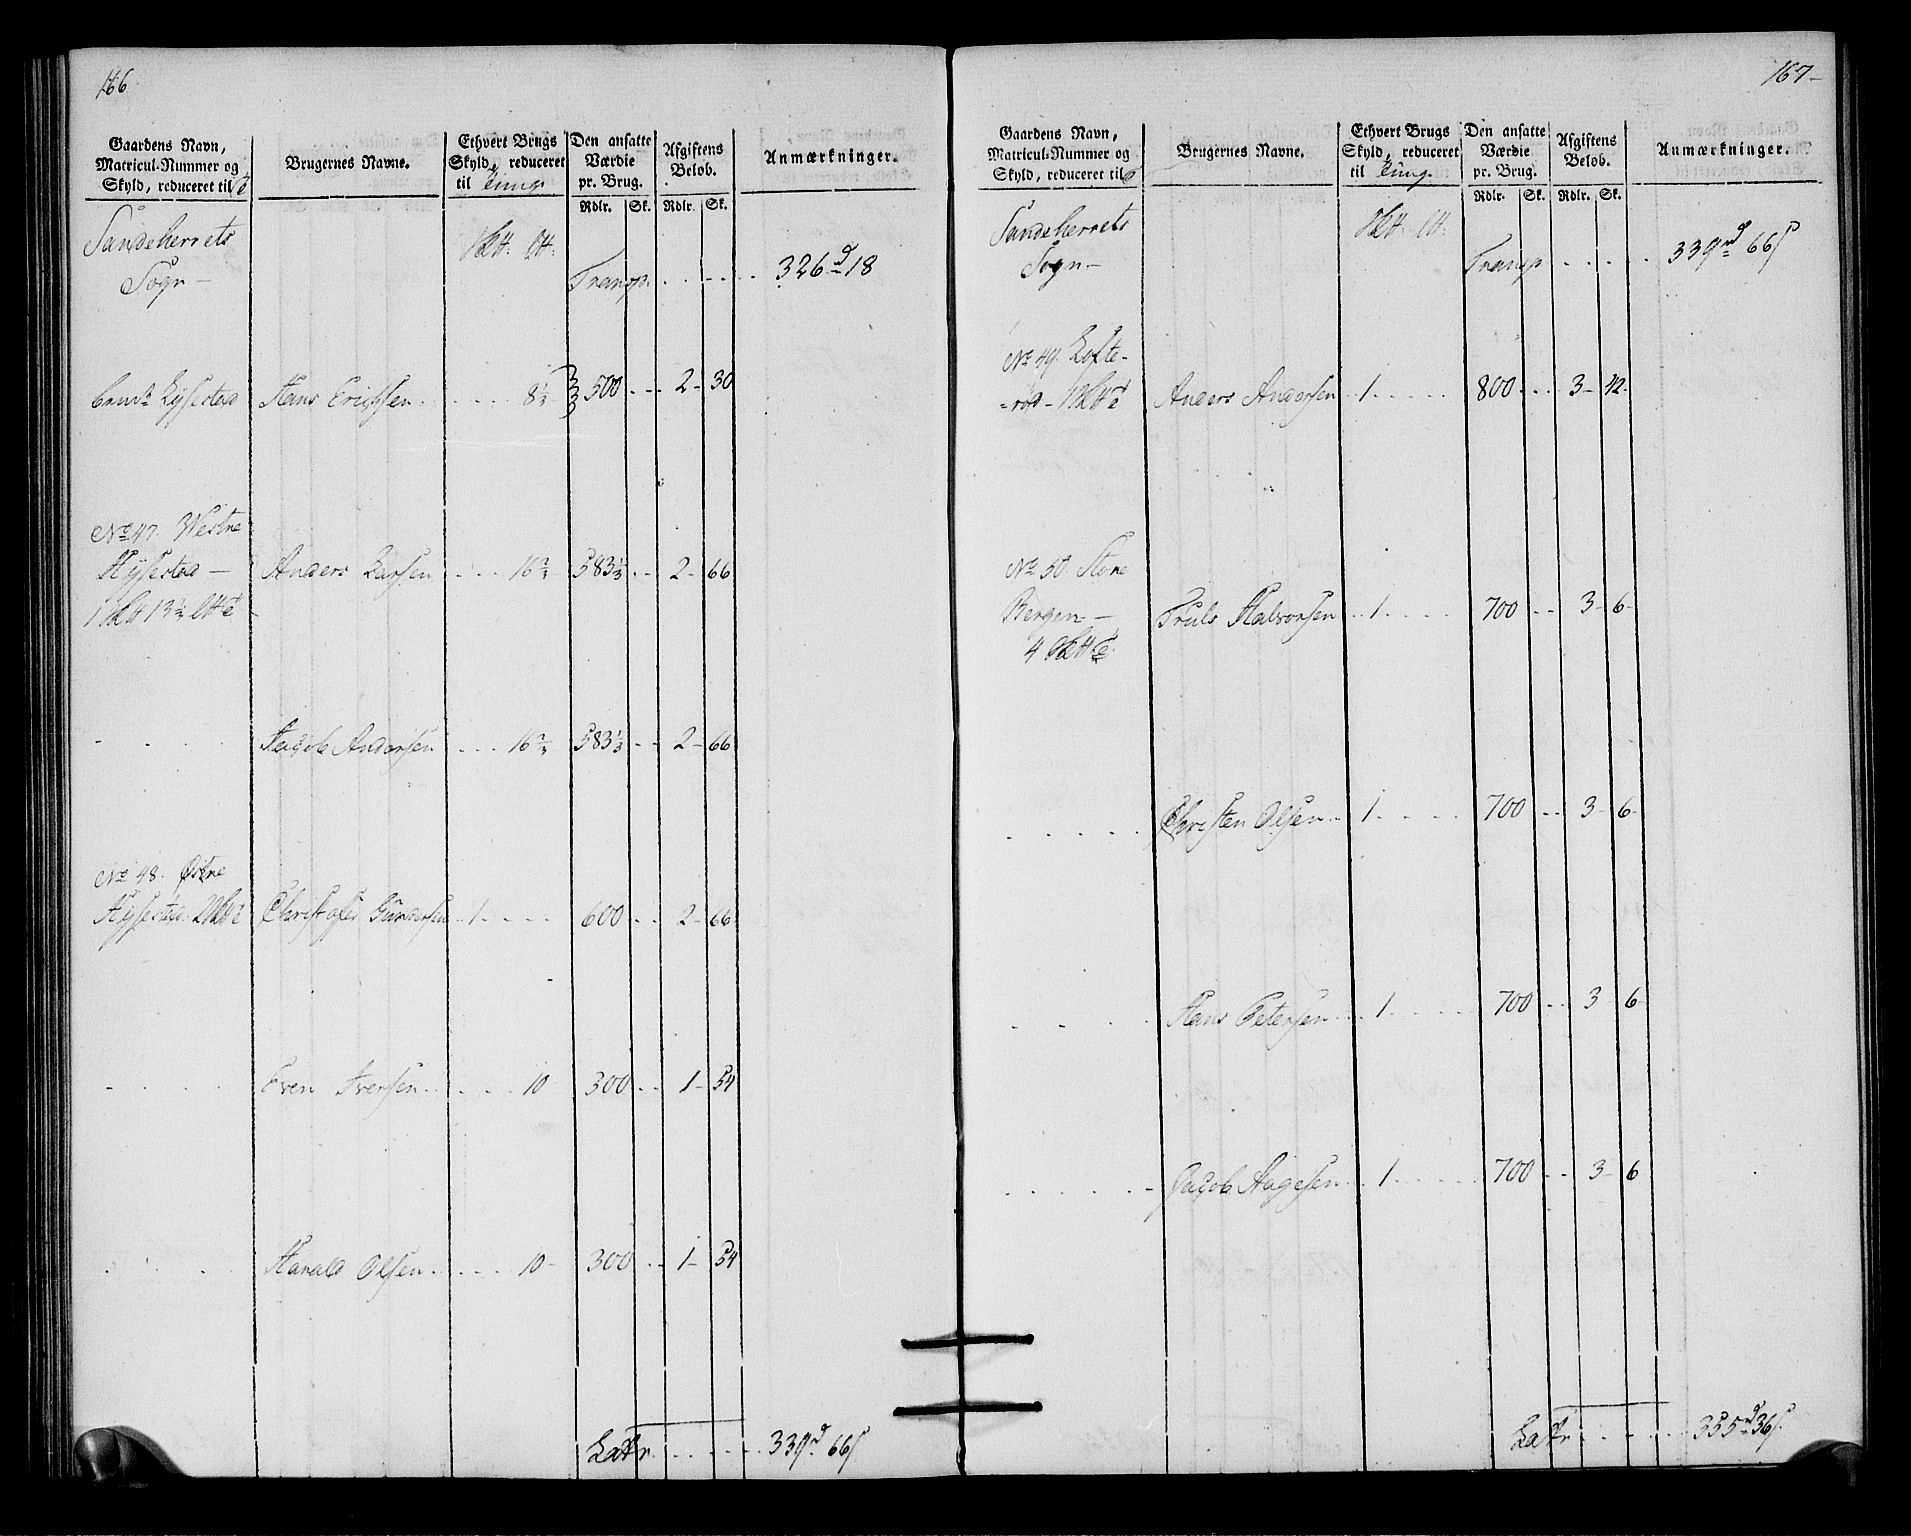 166
Gaardens Navn, Matricul-Nummer og Skyld, reduceret til
Brugernes Navne.
Ethvert Brugs Skyld, reduceret til Tung.
Den ansatte Værdie pr. Brug.
Afgiftens Beløb.
Anmærkninger.
Rdlr. Sk. Rdlr. Sk.
Sandeherrets
Sogn -
Transp. . . . . . 326 d 18
Hans Erichsen . . . . 8 1/3 500 . . 2 - 30
No 47. Westre
Hysestad - Anders Larsen . . . 16 2/3 583 1/3 . . 2 - 66
Jacob Andersen . . . 16 2/3 583 1/3 . . 2 - 66
No 48. Østre
Hysestad Christofer Gundersen . . 1 . . . . 600 . . 2 - 66
Even Iversen . . . . 10 300 . . 1 - 54
Harald Olsen . . . . 10 - 300 . . 1 - 54
Latr . . . . . . 339 d 66 s
167 -
Gaardens Navn, Matricul-Nummer og Skyld, reduceret til
Brugernes Navne.
Ethvert Brugs Skyld, reduceret til Tung.
Den ansatte Værdie pr. Brug.
Afgiftens Beløb.
Anmærkninger.
Rdlr. Sk. Rdlr. Sk.
Sandeherrets
Sogn -
Transp . . . . . 339 rd 66 s
No 49. Lofte-
=rød - Anders Andersen . . 1 . . . . . 800 . . . 3 - 42 -
No 50. Store
Bergan - Truls Halvorsen . . 1 . . . . 700 . . 3 - 6 -
Christen Olsen . . 1 . . . . 700 . . 3 - 6 -
Hans Petersen . . . 1 . . . . . 700 . . 3 6 -
Jacob Aagesen . . . 1 . . . . . 700 . . 3 - 6
Latr . . . . . . 355 rd 36 s